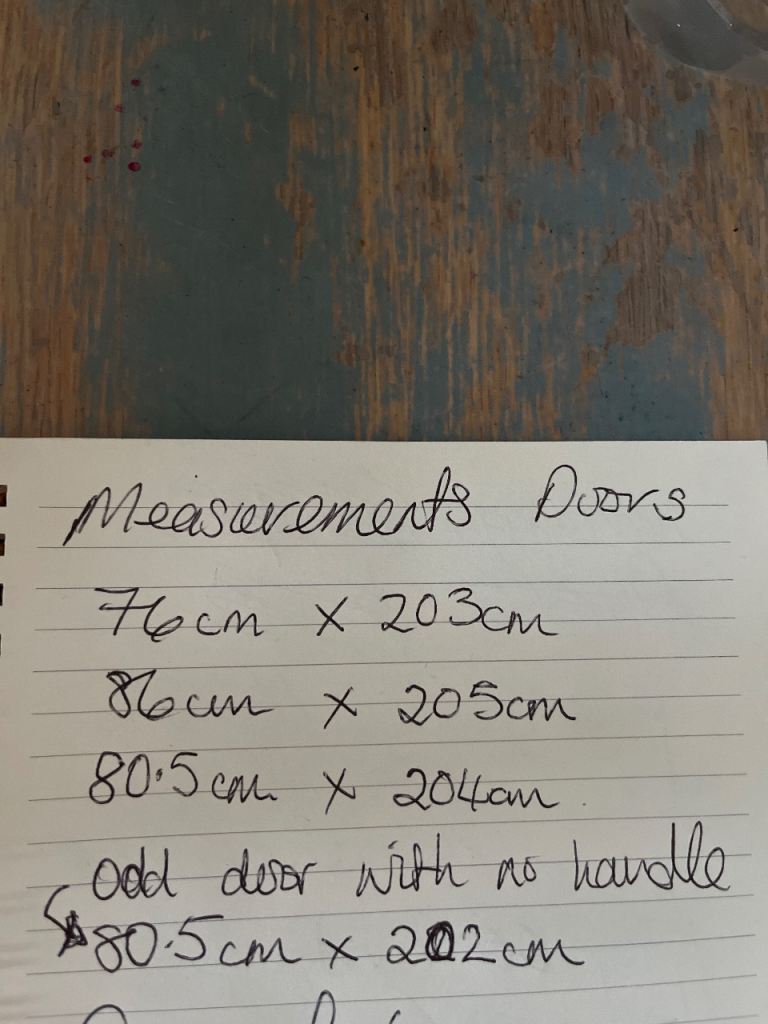 Measurements Doors
76cm x 203cm
86cm x 205cm
80.5cm x 204cm
odd door with no handle
80.5cm x 202cm